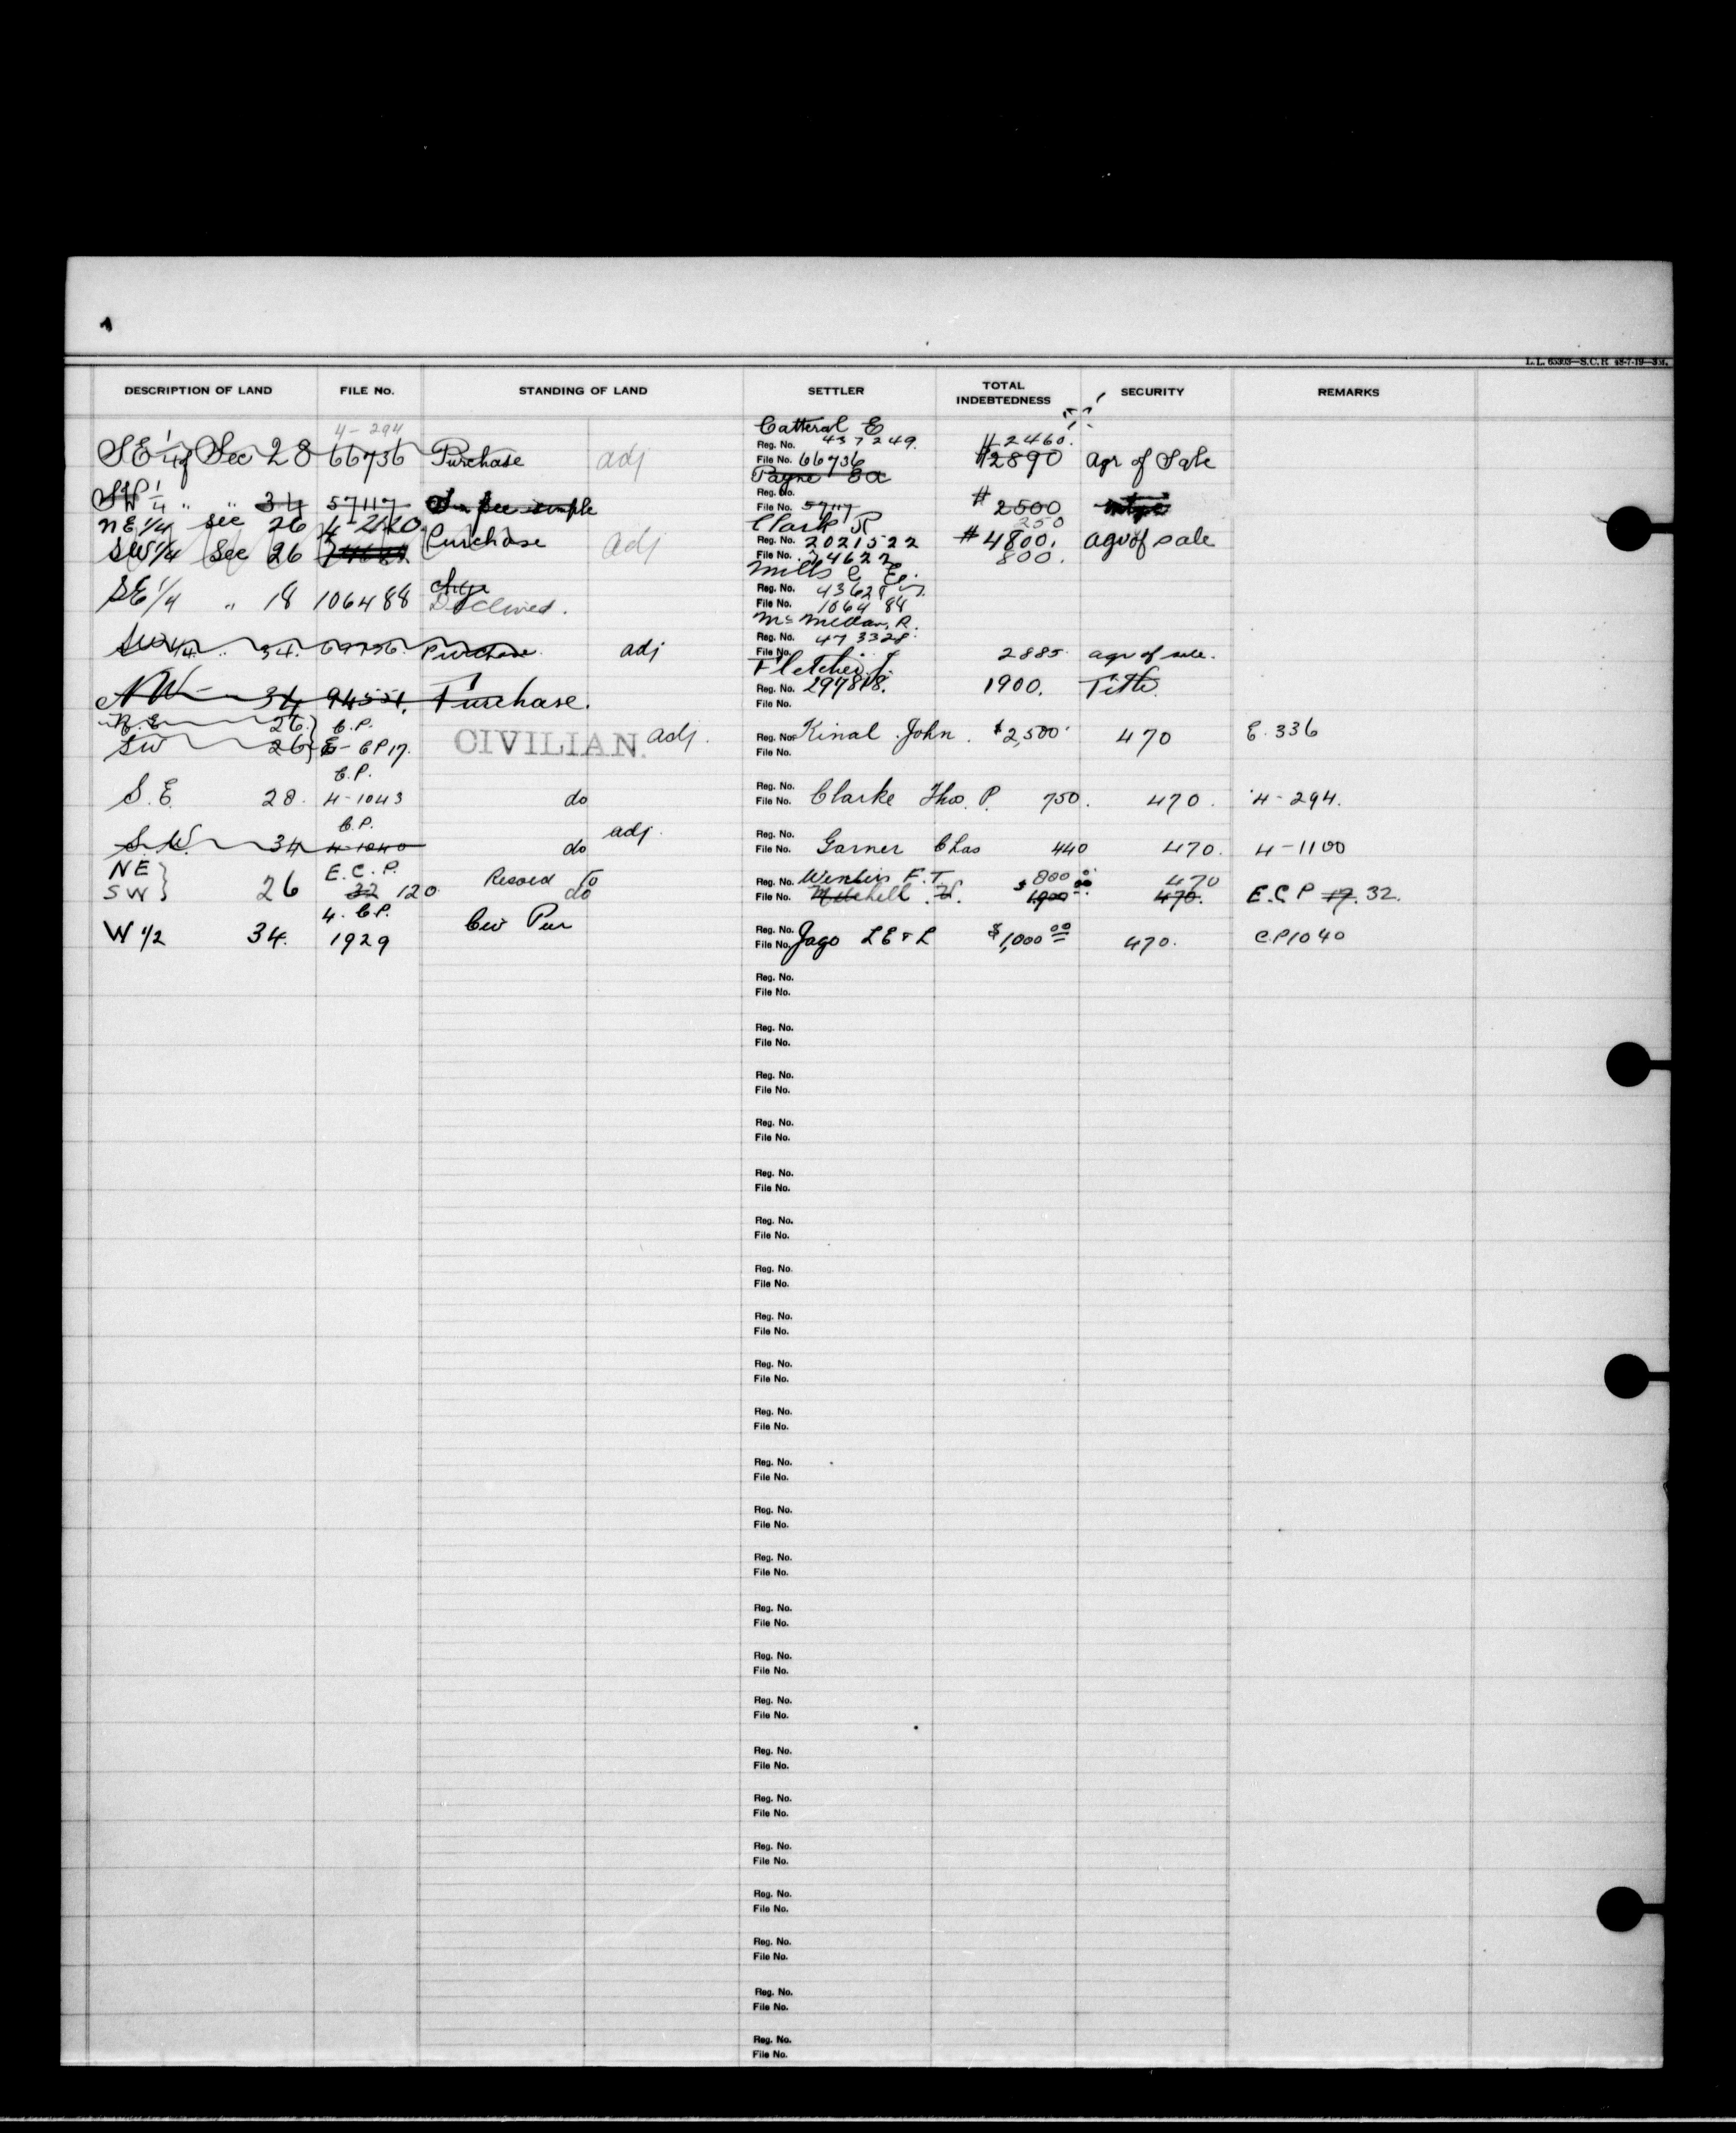 L.L. 65303—S.C.R. 48-7-19—3M.
DESCRIPTION OF LAND FILE No. STANDING OF LAND SETTLER TOTAL INDEBTEDNESS SECURITY REMARKS
4-294 Catteral E
Reg. No. 437249. #2460.
SE 1/4 of Sec 28 66736 Purchase adj File No. 66736 #2890 agr of Sale
Payne
Reg. No.
SW 1/4 " " 34 57117 In fee simple File No. 57117 #2500
NE 1/4 sec 26 4-2120. Clark R 250
SW 1/4 Sec 26 Purchase adj Reg. No. 2021522 #4800. agr of sale
File No. 74622 800.
Mills C E.
SE 1/4 " 18 106488 Declined. Reg. No.
File No. 106488
McMillan, R.
Reg. No. 473328.
SW 1/4 " 34. 69756. Purchase. adj File No. 2885. agr of sale.
Fletcher J.
NW 34 94551. Purchase. Reg. No. 297818. 1900. Title.
File No.
N.E. 26 C.P.
SW 26 E-CP17. CIVILIAN. adj. Reg. No. Kinal John. $2,500. 470 E.336
File No.
C.P.
Reg. No.
S.E. 28. 4-1043 do File No. Clarke Thos. P. 750. 470. 4-294.
C.P. adj.
Reg. No.
S.W. 34 4-1040 do File No. Garner Chas 440 470. 4-1100
NE E.C.P. Resold To Reg. No. F.T. $800 470
SW } 26 32 120 do File No. Mitchell 1900 470. E.C.P 17. 32.
4. C.P. Civ Pur
W 1/2 34. 1929 Reg. No.
File No. Jago L E & L $1,000 00 470. C.P1040
Reg. No.
File No.
Reg. No.
File No.
Reg. No.
File No.
Reg. No.
File No.
Reg. No.
File No.
Reg. No.
File No.
Reg. No.
File No.
Reg. No.
File No.
Reg. No.
File No.
Reg. No.
File No.
Reg. No.
File No.
Reg. No.
File No.
Reg. No.
File No.
Reg. No.
File No.
Reg. No.
File No.
Reg. No.
File No.
Reg. No.
File No.
Reg. No.
File No.
Reg. No.
File No.
Reg. No.
File No.
Reg. No.
File No.
Reg. No.
File No.
Reg. No.
File No.